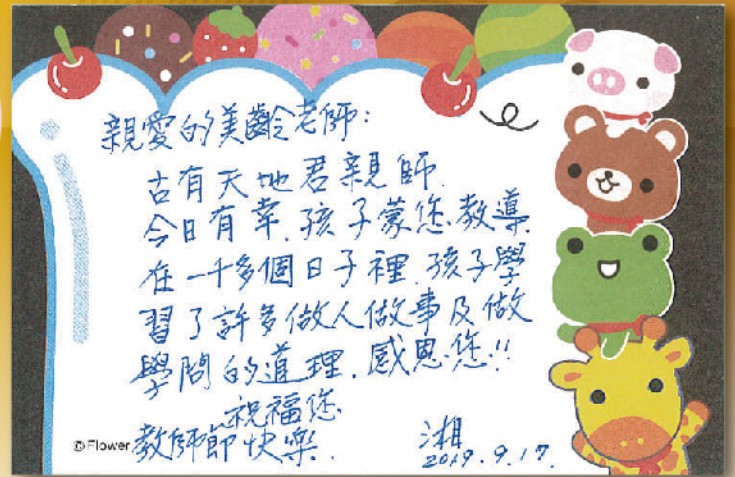 親愛的美齡老師：
古有天地君親師.
今日有幸.孩子蒙您教導.
在一千多個日子裡.孩子學
習了許多做人做事及做
學問的道理.感恩您!!
祝福您
教師節快樂.
湘
2019.9.17.
©Flower.